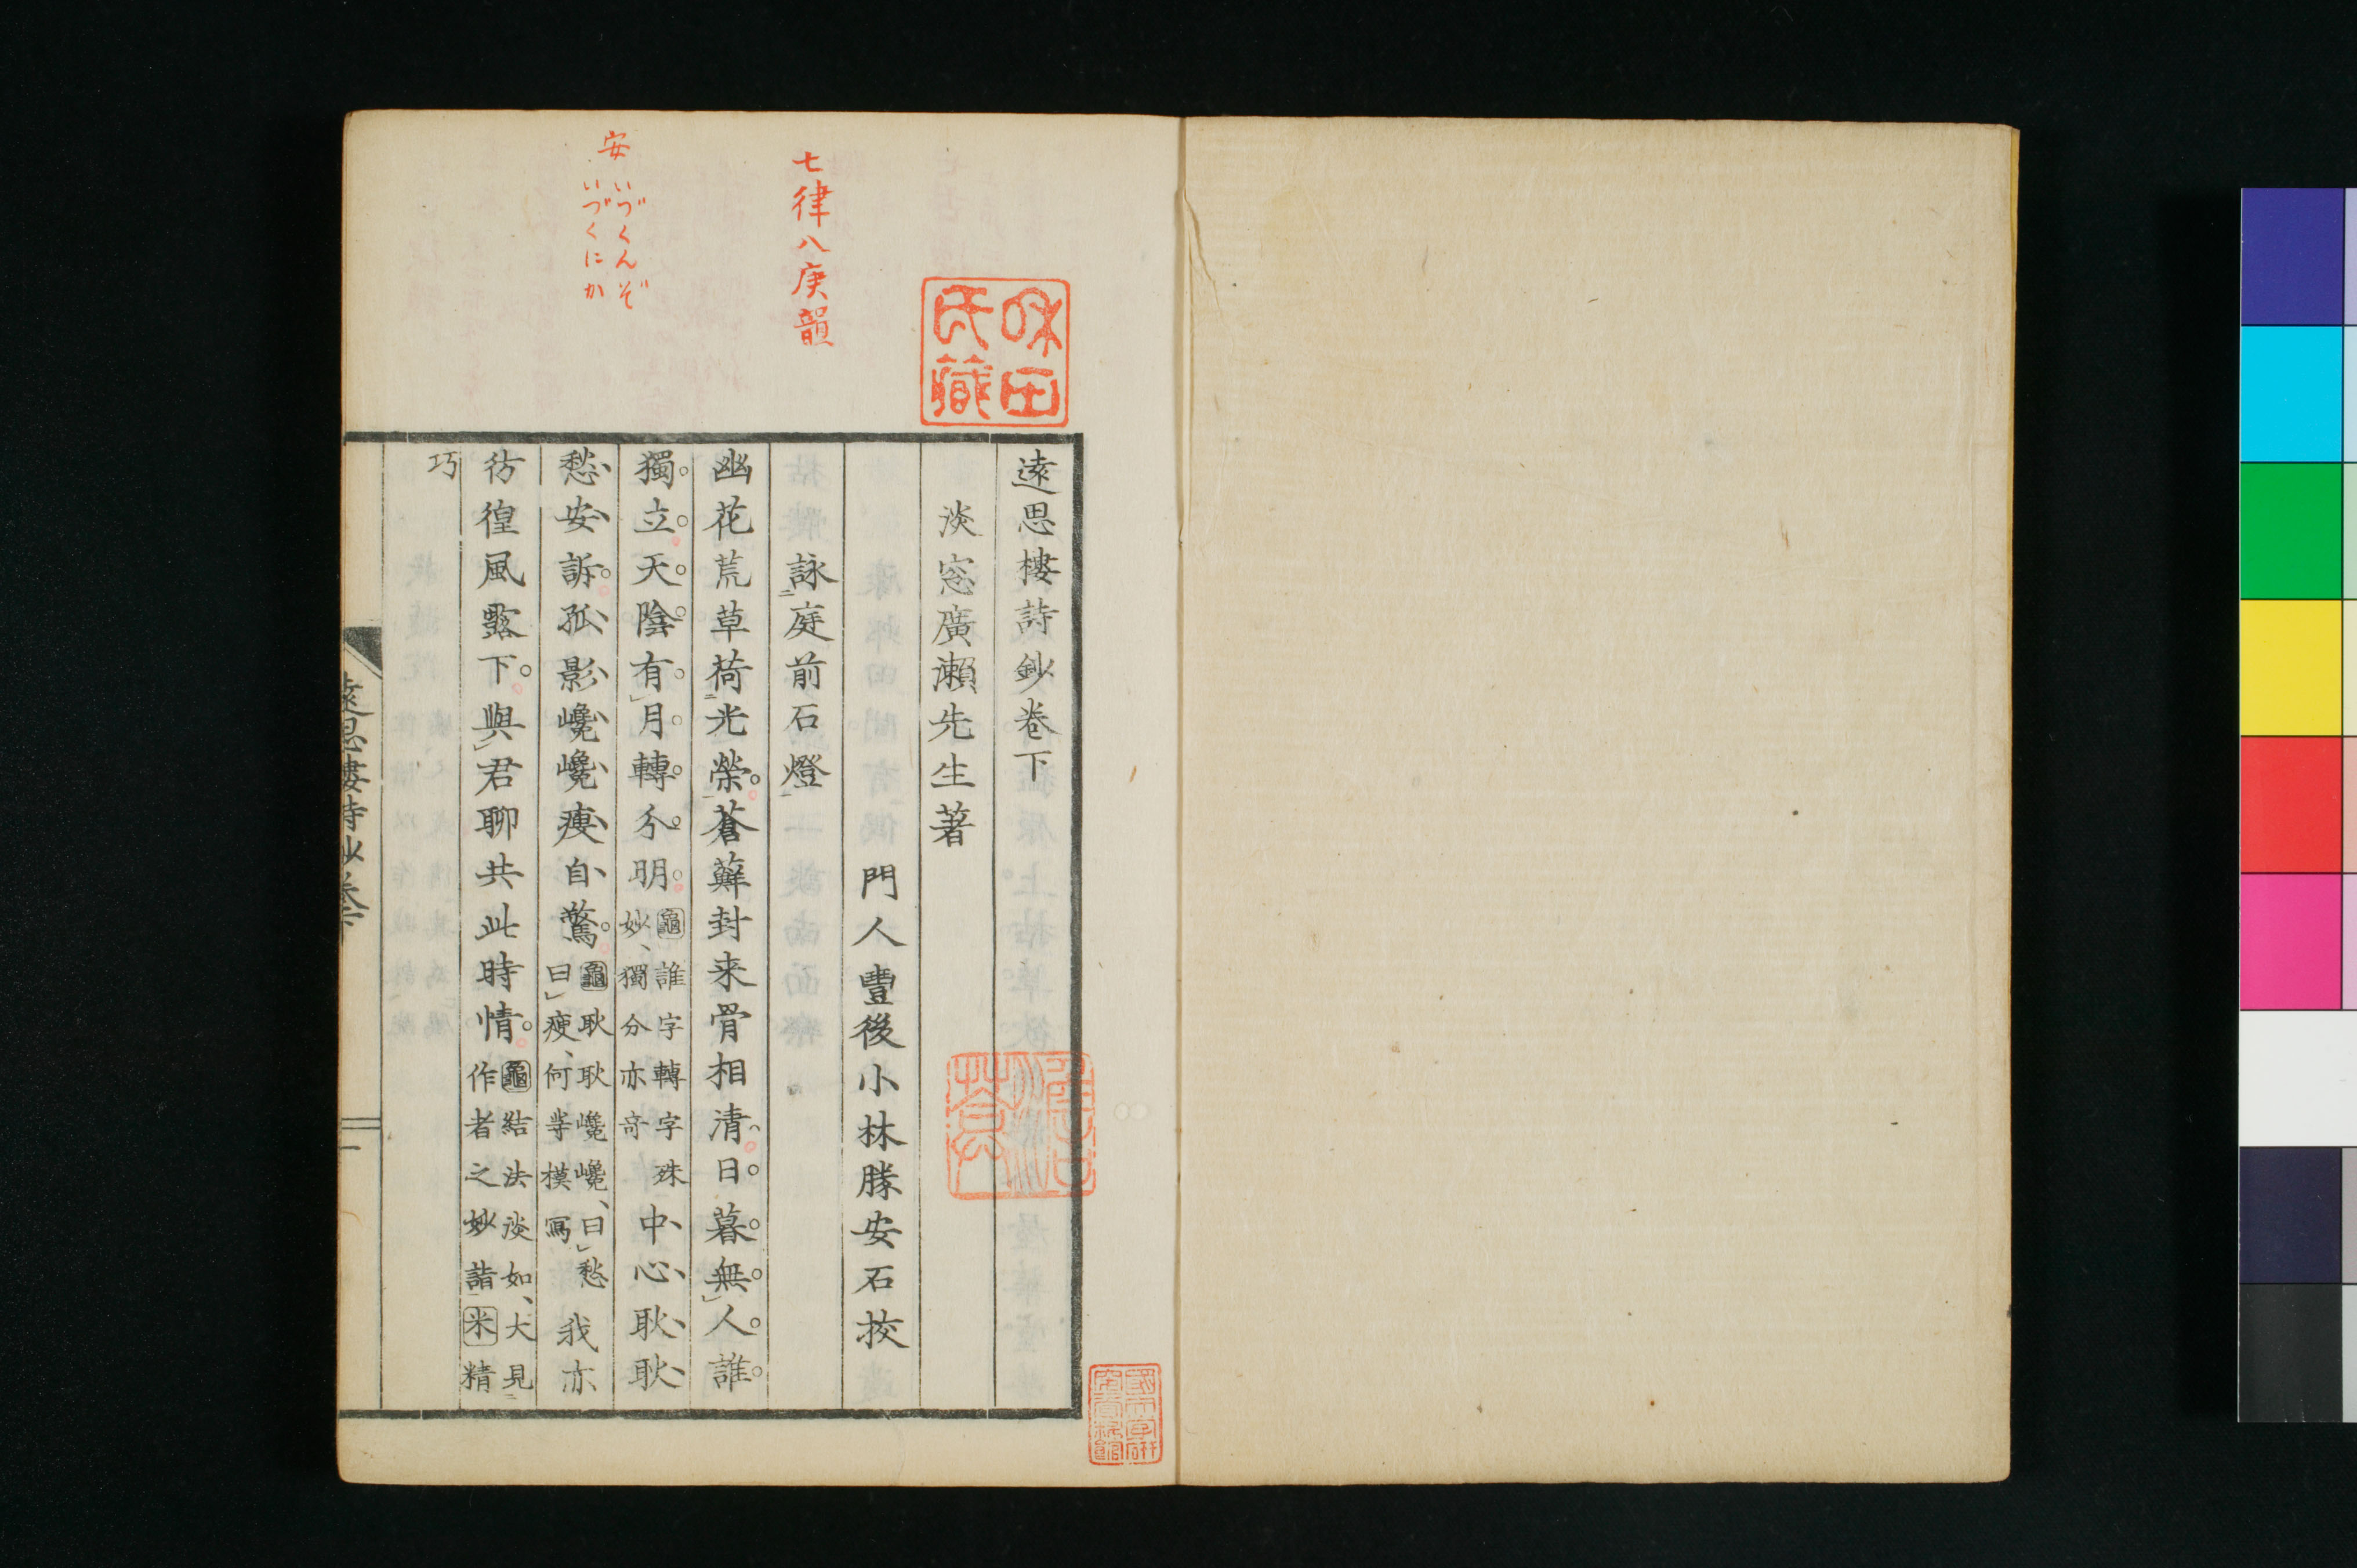 遠思樓詩鈔卷下
淡窓廣瀬先生著
門人豐後小林勝安石挍
詠庭前石燈
幽花荒草荷光榮蒼蘚封来骨相清日暮無人誰
獨立天陰有月轉分明龜誰字轉字殊妙、獨分亦竒中心耿耿
愁安訴孤影巉巉瘦自驚龜耿耿巉巉、曰愁曰瘦、何等模寫我亦
彷徨風露下與君聊共此時情龜結法淡如、大見作者之妙詣米精
巧
七律八庚韻
安
いづくんぞ
いづくにか
和田氏藏
遠思樓詩鈔卷下
一